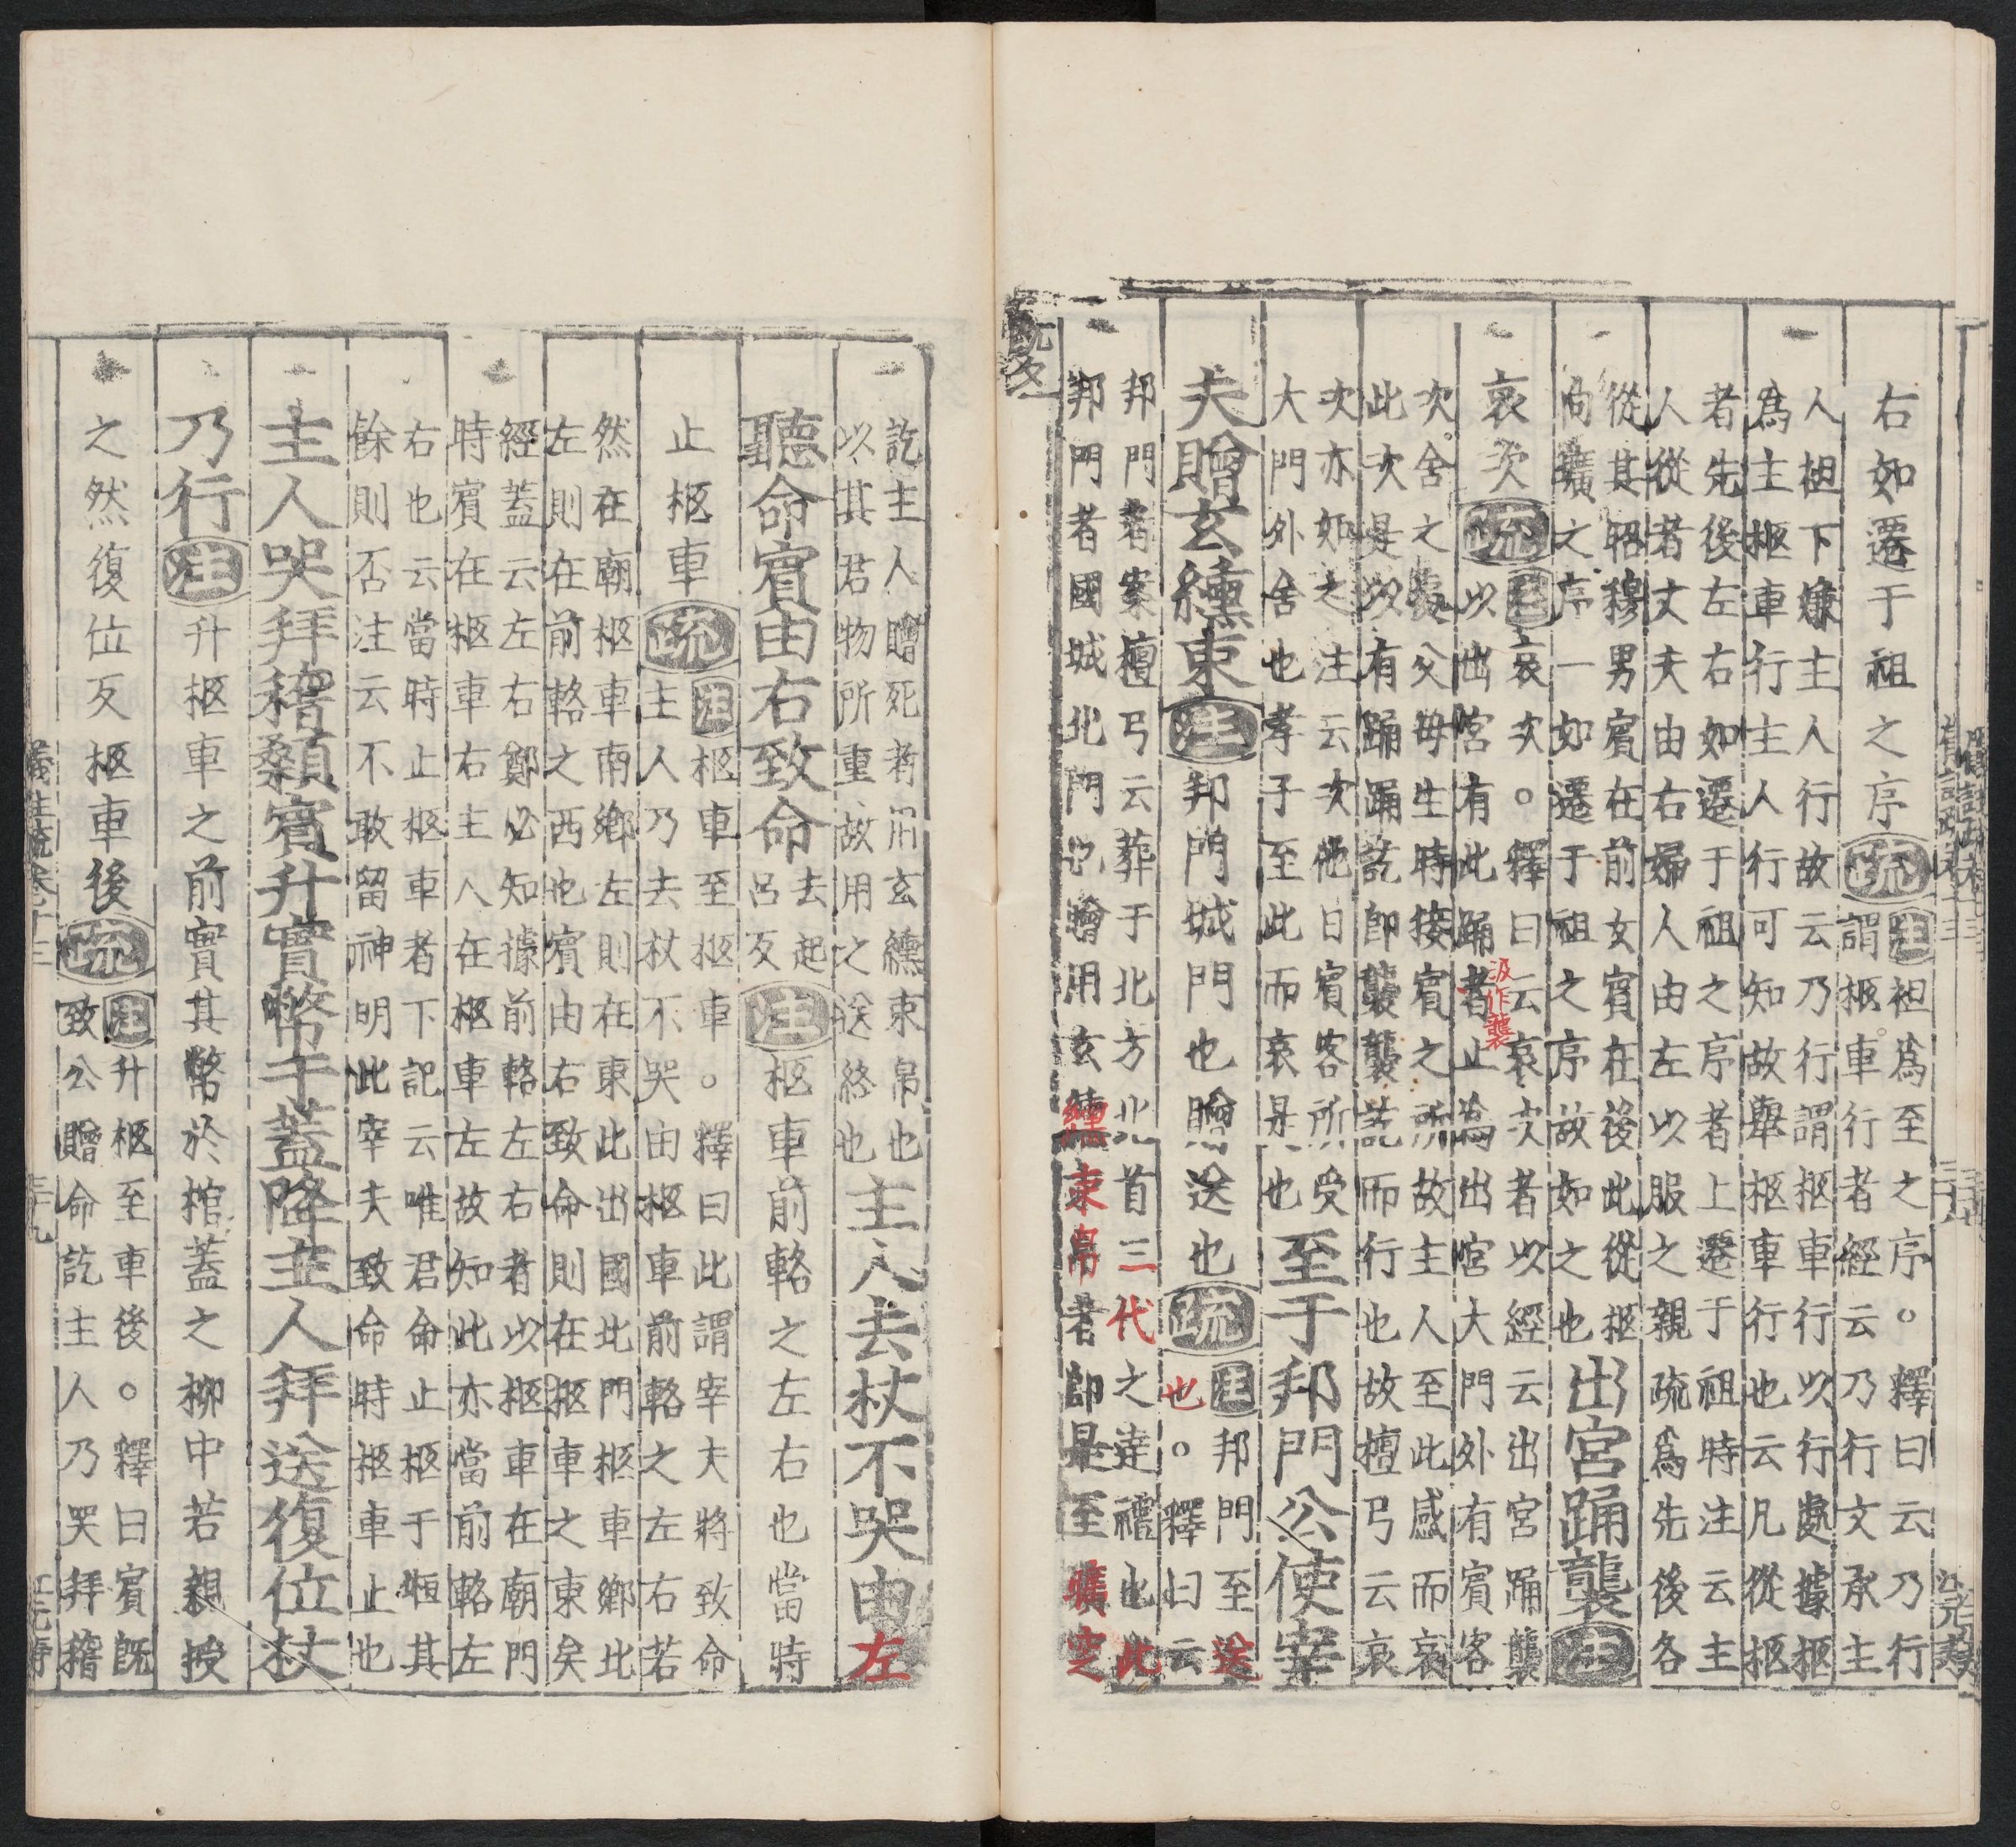 右如遷于祖之序疏
注袒爲至之序○釋曰云乃行
謂柩車行者經云乃行文承主
人袒下嫌主人行故云乃行謂柩車行以行處據柩
爲主柩車行主人行可知故舉柩車行行也云凡從柩
者先後左右如遷于祖之序者上遷于祖時注云主
人從者丈夫由右婦人由左以服之親疏爲先後各
從其昭穆男賓在前女賓在後此從柩
向壙之序一如遷于祖之序故如之也
出宮踊襲注
哀次疏
注哀次○釋曰云哀次者以經云出宮踊襲
以出宮有此踊者止爲出宮大門外有賓客
汲作襲
次舍之處父母生時接賓之所故主人至此感而哀
此次是以有踊踊訖即襲襲訖而行也故檀弓云哀
次亦如之注云次他日賓客所受
大門外舍也孝子至此而哀是也
至于邦門公使宰
夫贈玄纁束注邦門城門也贈送也疏
注邦門至送
也○釋曰云
邦門者案檀弓云葬于北方北首三代之達禮也此
邦門者國城北門也贈用玄纁束帛者即是至壙窆
訖主人贈死者用玄纁束帛也
以其君物所重故用之送終也
主人去杖不哭由左
聽命賓由右致命
去起
呂反
注柩車前輅之左右也當時
止柩車疏
注柩車至柩車○釋曰此謂宰夫將致命
主人乃去杖不哭由柩車前輅之左右若
然在廟柩車南鄉左則在東此出國北門柩車鄉北
左則在前輅之西也賓由右致命則在柩車之東矣
經蓋云左右鄭必知據前輅左右者以柩車在廟門
時賓在柩車右主人在柩車左故知此亦當前輅左
右也云當時止柩車者下記云唯君命止柩于堩其
餘則否注云不敢留神明此宰夫致命時柩車止也
主人哭拜稽顙賓升實幣于蓋降主人拜送復位杖
乃行注升柩車之前實其幣於棺蓋之柳中若親授
之然復位反柩車後疏
注升柩至車後○釋曰賓既
致公贈命訖主人乃哭拜稽